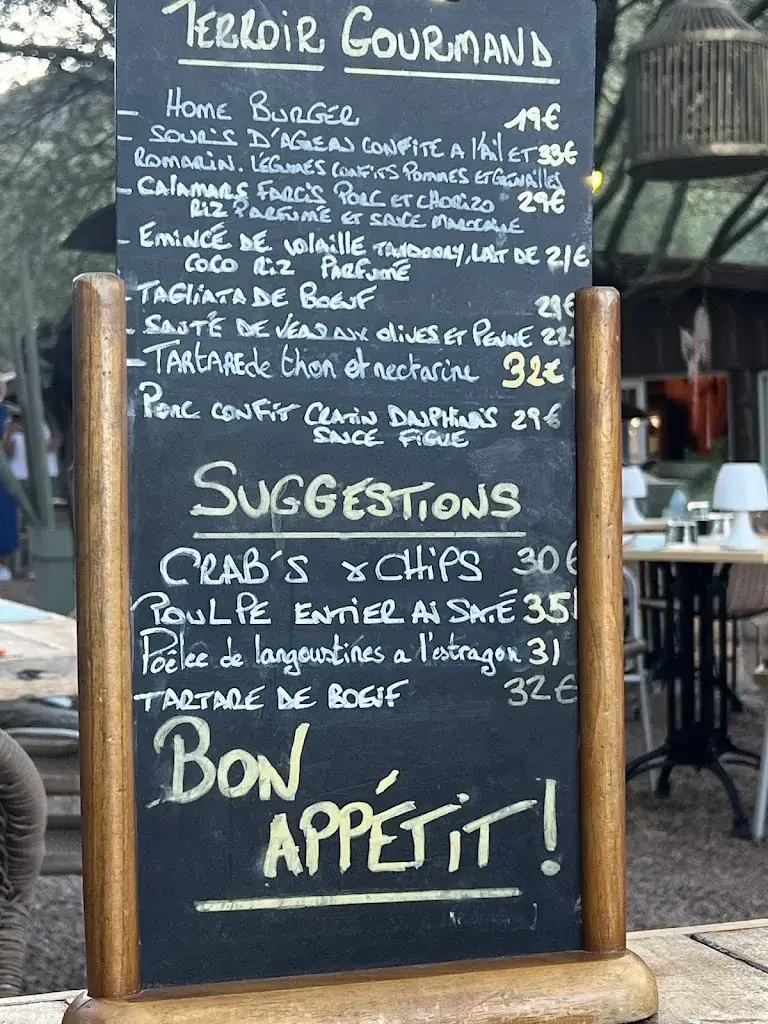 TERROIR GOURMAND
- HOME BURGER 19€
- SOURIS D'AGNEAU CONFITE A l'AIL ET 33€
ROMARIN. LÉGUMES CONFITS POMMES ET GRENAILLES
- CALAMARS FARCIS PORC ET CHORIZO 29€
RIZ PARFUMÉ ET SAUCE
- EMINCÉ DE VOLAILLE TANDOORY, LAIT DE 21€
COCO RIZ PARFUMÉ
- TAGLIATA DE BOEUF €
- SAUTÉ DE VEAU AUX OLIVES ET PENNE 22
- TARTARE de thon et nectarine 32€
PORC CONFIT GRATIN DAUPHINOIS 29€
SAUCE FIGUE
SUGGESTIONS
CRAB'S & CHIPS 30€
POULPE ENTIER AU SATÉ 35
Poêlee de langoustines a l'estragon 31
TARTARE DE BOEUF 32€
BON
APPÉTIT !